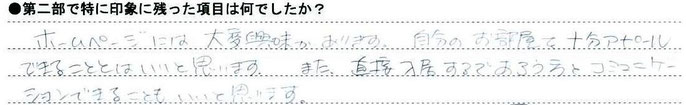 ●第二部で特に印象に残った項目は何でしたか？
ホームページには大変興味があります。自分のお部屋を十分アピール
できることはいいと思います。また、直接入居するであろう方とコミュニケー
ションできることもいいと思います。